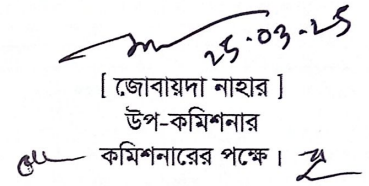 25-03-25
[ জোবায়দা নাহার ]
উপ-কমিশনার
কমিশনারের পক্ষে।